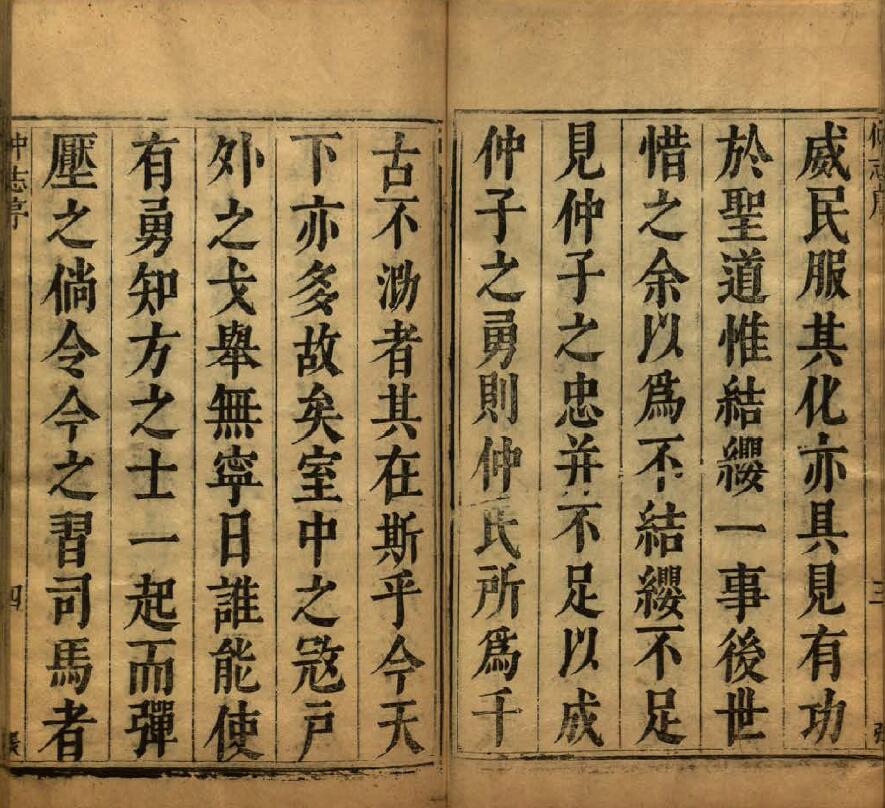 仲志序
三
張
威民服其化亦具見有功
於聖道惟結纓一事後世
惜之余以爲不結纓不足
見仲子之忠并不足以成
仲子之勇則仲氏所爲千
古不泐者其在斯乎今天
下亦多故矣室中之㓂戶
外之戈舉無寧日誰能使
有勇知方之士一起而彈
壓之倘令今之習司馬者
仲志序
四
張